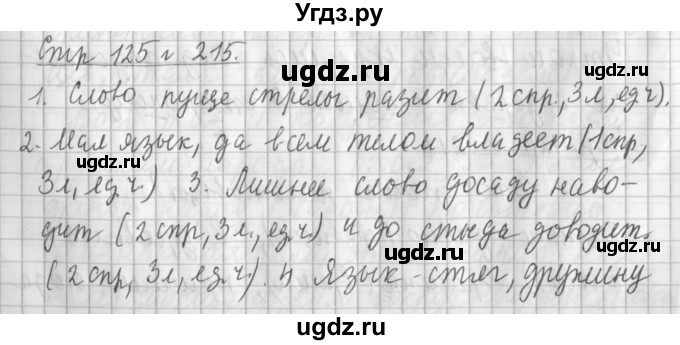 Угдз.ру
Стр 125 г 215.
1. Слово пуще стрелы разит (2 спр., 3 л, ед.ч).
2. Мал язык, да всем телом владеет (1 спр,
3 л, ед.ч.) 3. Лишнее слово досаду наво-
дит (2 спр, 3 л, ед.ч.) и до стыда доводит.
(2 спр, 3 л, ед.ч.). 4 Язык - стяг, дружину
ugdz.ru
ugdz.ru
ugdz.ru
ugdz.ru
ugdz.ru
ugdz.ru
ugdz.ru
ugdz.ru